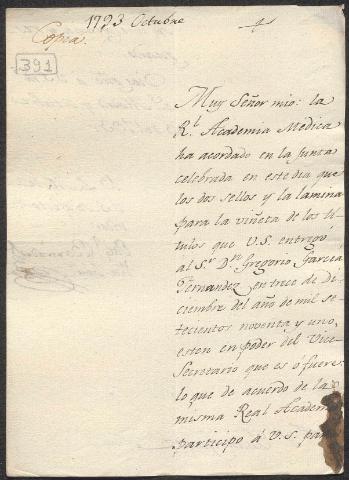 1793 Octubre
Copia
391
Muy Señor mio: la
Rl. Academia Medica
ha acordado en la Junta
celebrada en este dia que
los dos sellos y la lamina
para la viñeta de los ti-
tulos que V.S. entregó
al Sr. Dn. Gregorio Garcia
Fernandez en trece de Di-
ciembre del año de mil se-
tecientos noventa y uno,
esten en poder del Vice-
Secretario que es ó fuere:
lo que de acuerdo de la
misma Real Academ
participo á V.S. par